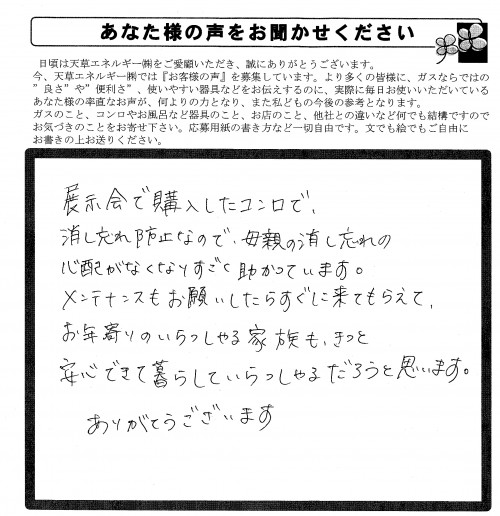 あなた様の声をお聞かせください
日頃は天草エネルギー㈱をご愛顧いただき、誠にありがとうございます。
今、天草エネルギー㈱では『お客様の声』を募集しています。より多くの皆様に、ガスならではの
”良さ”や”便利さ”、使いやすい器具などをお伝えするのに、実際に毎日お使いいただいている
あなた様の率直なお声が、何よりの力となり、また私どもの今後の参考となります。
ガスのこと、コンロやお風呂など器具のこと、お店のこと、他社との違いなど何でも結構ですので
お気づきのことをお寄せ下さい。応募用紙の書き方など一切自由です。文でも絵でもご自由に
お書きの上お送りください。
展示会で購入したコンロで、
消し忘れ防止なので、母親の消し忘れの
心配がなくなりすごく助かっています。
メンテナンスもお願いしたらすぐに来てもらえて、
お年寄りのいらっしゃる家族も、きっと
安心できて暮らしていらっしゃるだろうと思います。
ありがとうございます